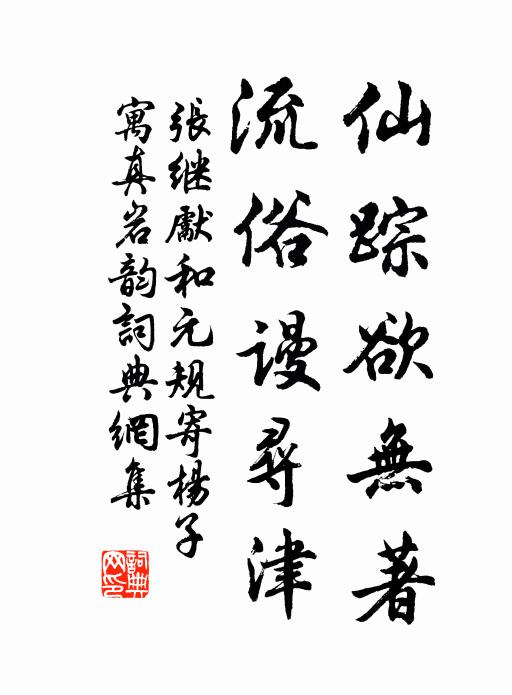 仙踪欲無著
流俗謾尋津
張继獻和元規寄楊子
寓真岩韵詞典網集
詞典网印